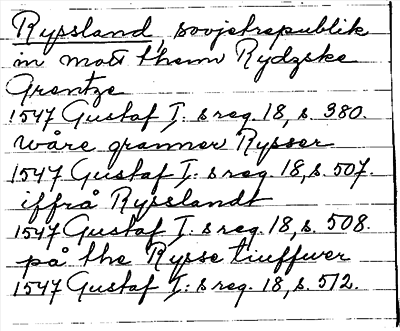 Ryssland, sovjetrepublik
in mott them Rydzske
Grentze
1547 Gustaf I:s reg. 18, s. 380.
wåre granner Rysser
1547 Gustaf I:s reg. 18, s. 507.
iffrå Rysslandt
1547 Gustaf I:s reg. 18, s. 508.
på the Rysse tiuffwer
1547 Gustaf I:s reg. 18, s. 512.